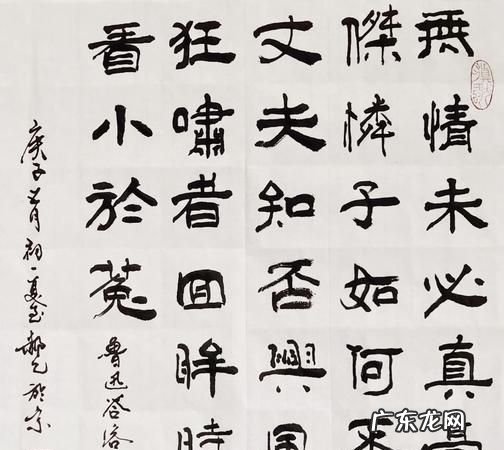 無情未必真豪
傑憐子如何
丈夫知否興
狂嘯者回眸時
看小於菟 魯迅答客
庚子 月初一夏
广东龙网